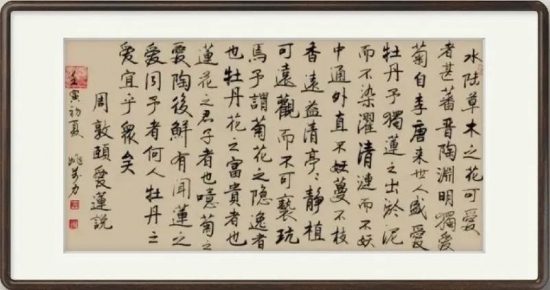 水陸草木之花可愛
者甚蕃晋陶淵明獨愛
菊自李唐来世人盛爱
牡丹予獨蓮之出淤泥
而不染濯清漣而不妖
中通外直不妖蔓不枝
香遠益清亭々静植
可遠觀而不可褻玩
焉予謂菊花之隐逸者
也牡丹花之富貴者也
蓮花之君子者也噫菊之
愛陶後鮮有聞蓮之
愛同予者何人牡丹之
爱宜乎衆矣
周敦頤愛蓮説
壬寅初夏